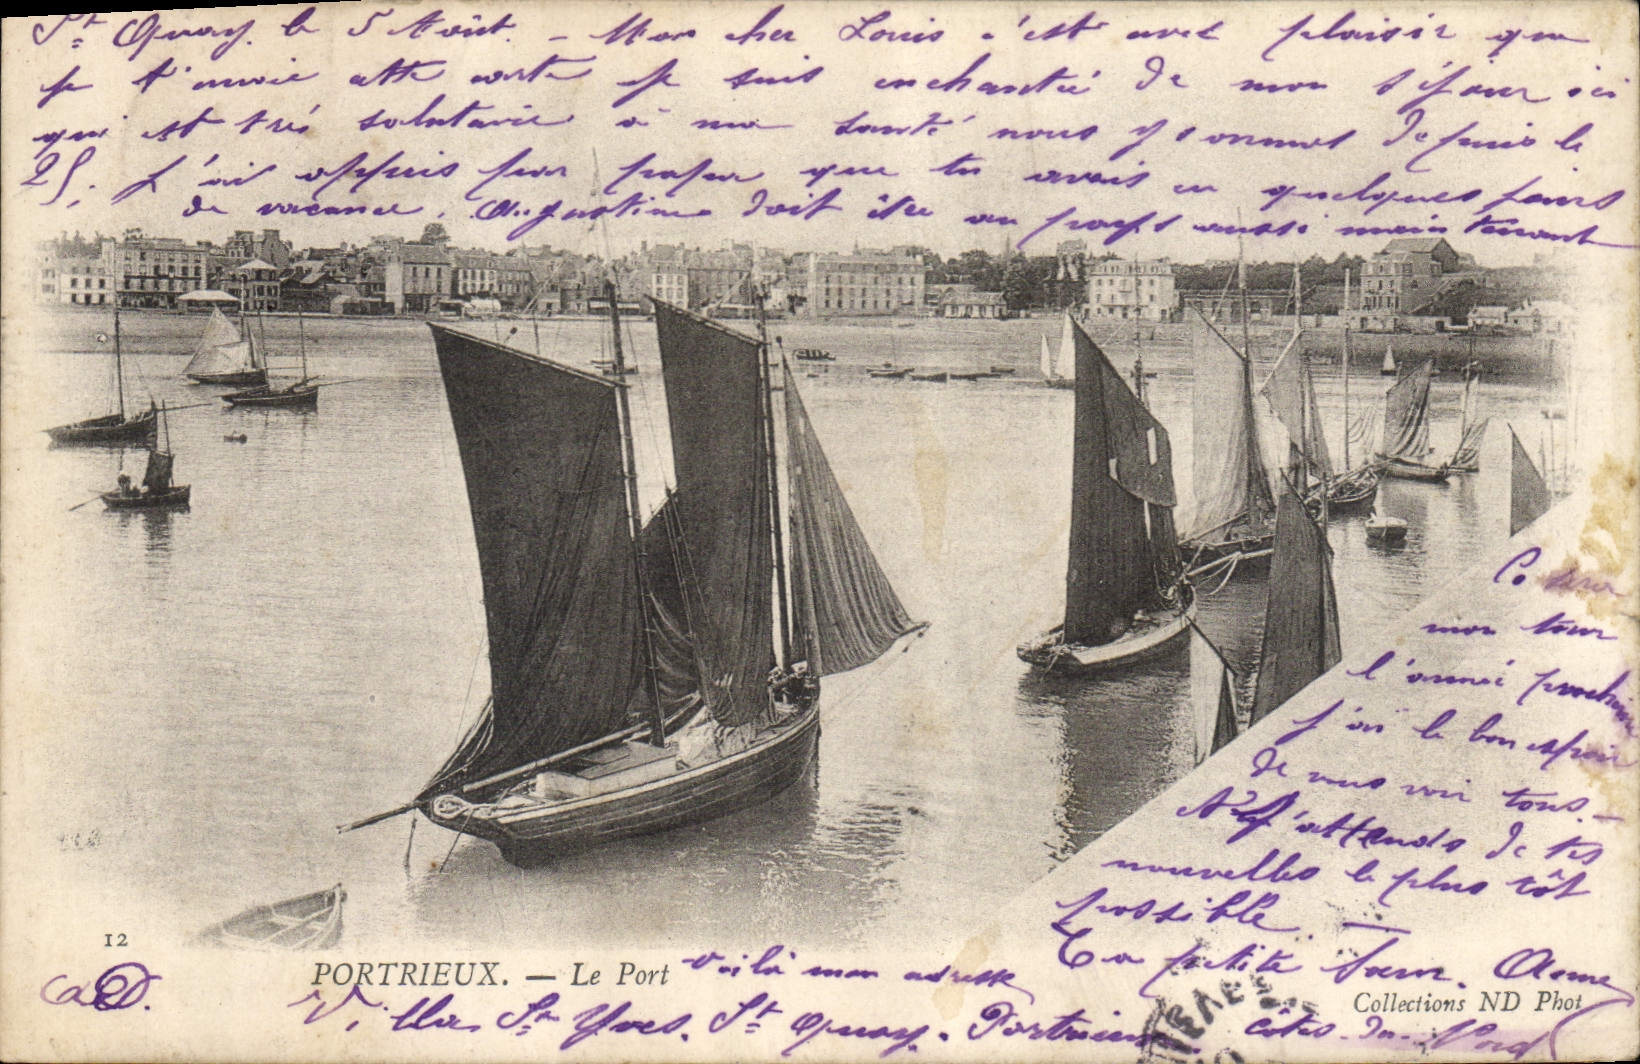 St Quay. le 5 Août. — Mon cher Louis c'est avec plaisir que
je t'envoie cette carte je suis enchantée de mon séjour ici
qui est très salutaire à ma santé nous y sommes depuis le
25, j'ai appris par papa que tu avais eu quelques jours
de vacance, Augustine doit être au pays aussi maintenant
Ce sera
mon tour
l'année prochaine
j'ai le bon espoir
de vous voir tous. —
J'attends de tes
nouvelles le plus tôt
possible —
Ta petite sœur. Anna
12
PORTRIEUX. — Le Port
Voilà mon adresse
Collections ND Phot
Villa St Yves. St Quay. Portrieux. Côtes-du-Nord